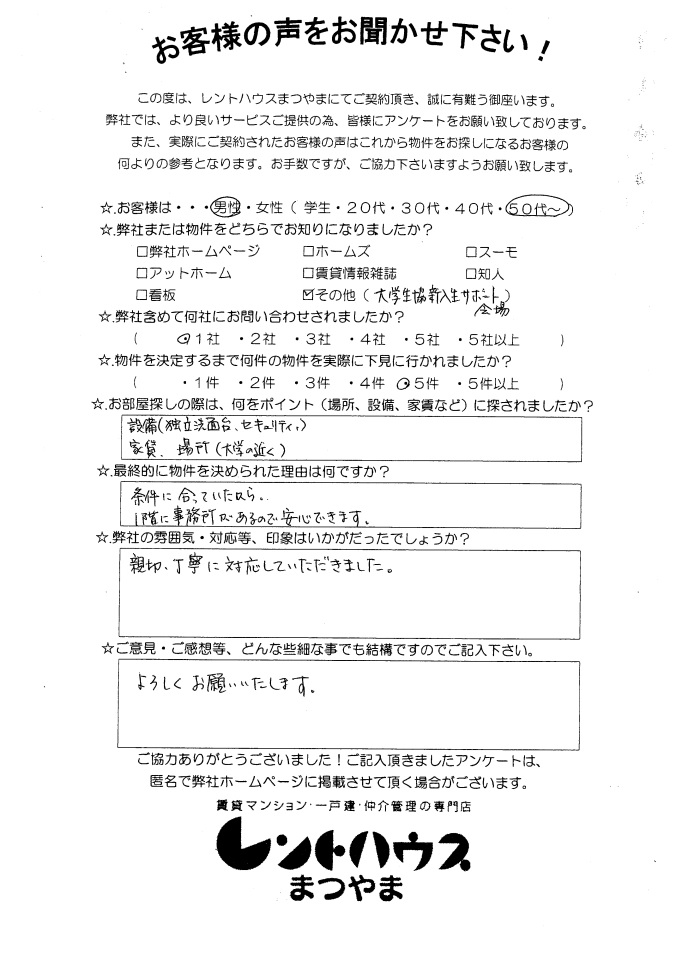 お客様の声をお聞かせ下さい！
この度は、レントハウスまつやまにてご契約頂き、誠に有難う御座います。
弊社では、より良いサービスご提供の為、皆様にアンケートをお願い致しております。
また、実際にご契約されたお客様の声はこれから物件をお探しになるお客様の
何よりの参考となります。お手数ですが、ご協力下さいますようお願い致します。
☆.お客様は・・・男性・女性（学生・２０代・３０代・４０代・５０代～）
☆.弊社または物件をどちらでお知りになりましたか？
□弊社ホームページ □ホームズ □スーモ
□アットホーム □賃貸情報雑誌 □知人
□看板 ☑その他（大学生協新入生サポート）
会場
☆.弊社含めて何社にお問い合わせされましたか？
（ ・１社 ・２社 ・３社 ・４社 ・５社 ・５社以上 ）
☆.物件を決定するまで何件の物件を実際に下見に行かれましたか？
（ ・１件 ・２件 ・３件 ・４件 ・５件 ・５件以上 ）
☆.お部屋探しの際は、何をポイント（場所、設備、家賃など）に探されましたか？
設備(独立洗面台、セキュリティ)
家賃、場所(大学の近く)
☆.最終的に物件を決められた理由は何ですか？
条件に合っていたから。
1階に事務所があるので安心できます。
☆.弊社の雰囲気・対応等、印象はいかがだったでしょうか？
親切、丁寧に対応していただきました。
☆ご意見・ご感想等、どんな些細な事でも結構ですのでご記入下さい。
よろしくお願いいたします。
ご協力ありがとうございました！ご記入頂きましたアンケートは、
匿名で弊社ホームページに掲載させて頂く場合がございます。
賃貸マンション・一戸建・仲介管理の専門店
レントハウス
まつやま